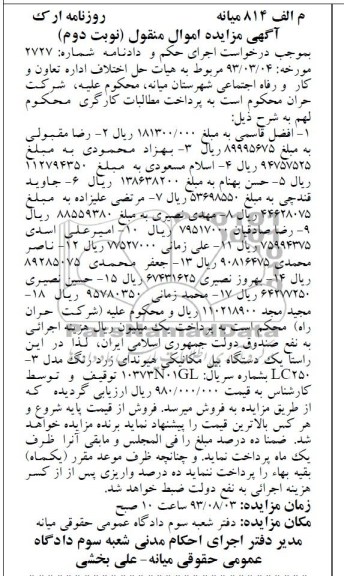 م الف ۸۱۴ میانه روزنامه ارک
آگهی مزایده اموال منقول (نوبت دوم)
بموجب درخواست اجرای حکم و دادنامه شماره: ۲۷۲۷
مورخه: ۹۳/۰۳/۰۴ مربوط به هیات حل اختلاف اداره تعاون و
کار و رفاه اجتماعی شهرستان میانه، محکوم علیه، شرکت
حران محکوم است به پرداخت مطالبات کارگری محکوم
لهم به شرح ذیل:
۱- افضل قاسمی به مبلغ ۱۸۱۳۰۰/۰۰۰ ریال ۲- رضا مقبولی
به مبلغ ۸۹۹۹۵۶۷۵ ریال ۳- بهزاد محمودی به مبلغ
۹۴۷۵۷۵۲۵ ریال ۴- اسلام مسعودی به مبلغ ۱۱۲۷۹۴۳۵۰
ریال ۵- حسن بهنام به مبلغ ۱۳۸۶۳۸۲۰۰ ریال ۶- جاوید
قندچی به مبلغ ۵۳۶۹۸۵۵۰ ریال ۷- مرتضی علیزاده به مبلغ
۴۴۶۲۸۰۷۵ ریال ۸- مهدی نصیری به مبلغ ۸۸۵۵۹۳۸۰ ریال
۹- رضا صادقیان ۷۹۵۱۷۰۰۰ ریال ۱۰- امیرعلی اسدی
۷۵۹۹۴۳۷۵ ریال ۱۱- علی زمانی ۷۷۵۲۷۰۰۰ ریال ۱۲- ناصر
محمدی ۹۰۸۱۶۴۷۵ ریال ۱۳- جعفر محمدی ۸۹۲۸۵۰۷۵
ریال ۱۴- بهروز نصیری ۶۷۴۳۱۶۲۵ ریال ۱۵- حسین نصیری
۶۴۲۷۷۲۵۰ ریال ۱۷- محمد زمانی ۹۵۷۸۰۳۵۰ ریال ۱۸-
مجید مجد ۱۱۰۲۱۸۹۰۰ ریال و محکوم علیه (شرکت حران
راه) محکوم است به پرداخت یک میلیون ریال هزینه اجرائی
به نفع صندوق دولت جمهوری اسلامی ایران، لذا در این
راستا یک دستگاه بیل مکانیکی هیوندای زارد رنگ مدل ۳-
LC۲۵۰ بشماره سریال: ۱۰۳۷۳N۰۱GL توقیف و توسط
کارشناس به قیمت ۹۸۰/۰۰۰/۰۰۰ ریال ارزیابی گردیده که
از طریق مزایده به فروش میرسد. فروش از قیمت پایه شروع و
هر کس بالاترین قیمت را پیشنهاد نماید برنده مزایده خواهد
شد. ضمنا ده درصد مبلغ را فی المجلس و مابقی آنرا ظرف
یک ماه پرداخت نماید. و چنانچه ظرف موعد مقرر (یکماه)
بقیه بهاء را پرداخت ننماید ده درصد واریزی پس از کسر
هزینه اجرائی به نفع دولت ضبط خواهد شد.
زمان مزایده: ۹۳/۰۸/۰۳ ساعت ۱۰ صبح
مکان مزایده: دفتر شعبه سوم دادگاه عمومی حقوقی میانه
مدیر دفتر اجرای احکام مدنی شعبه سوم دادگاه
عمومی حقوقی میانه- علی بخشی